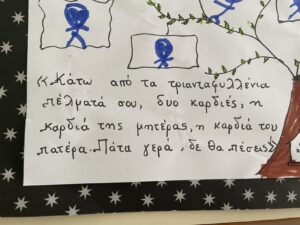 « Κάτω από τα τριανταφυλλένια
πέλματά σου, δυο καρδιές, η
καρδιά της μητέρας, η καρδιά του
πατέρα. Πάτα γερά, δε θα πέσεις»